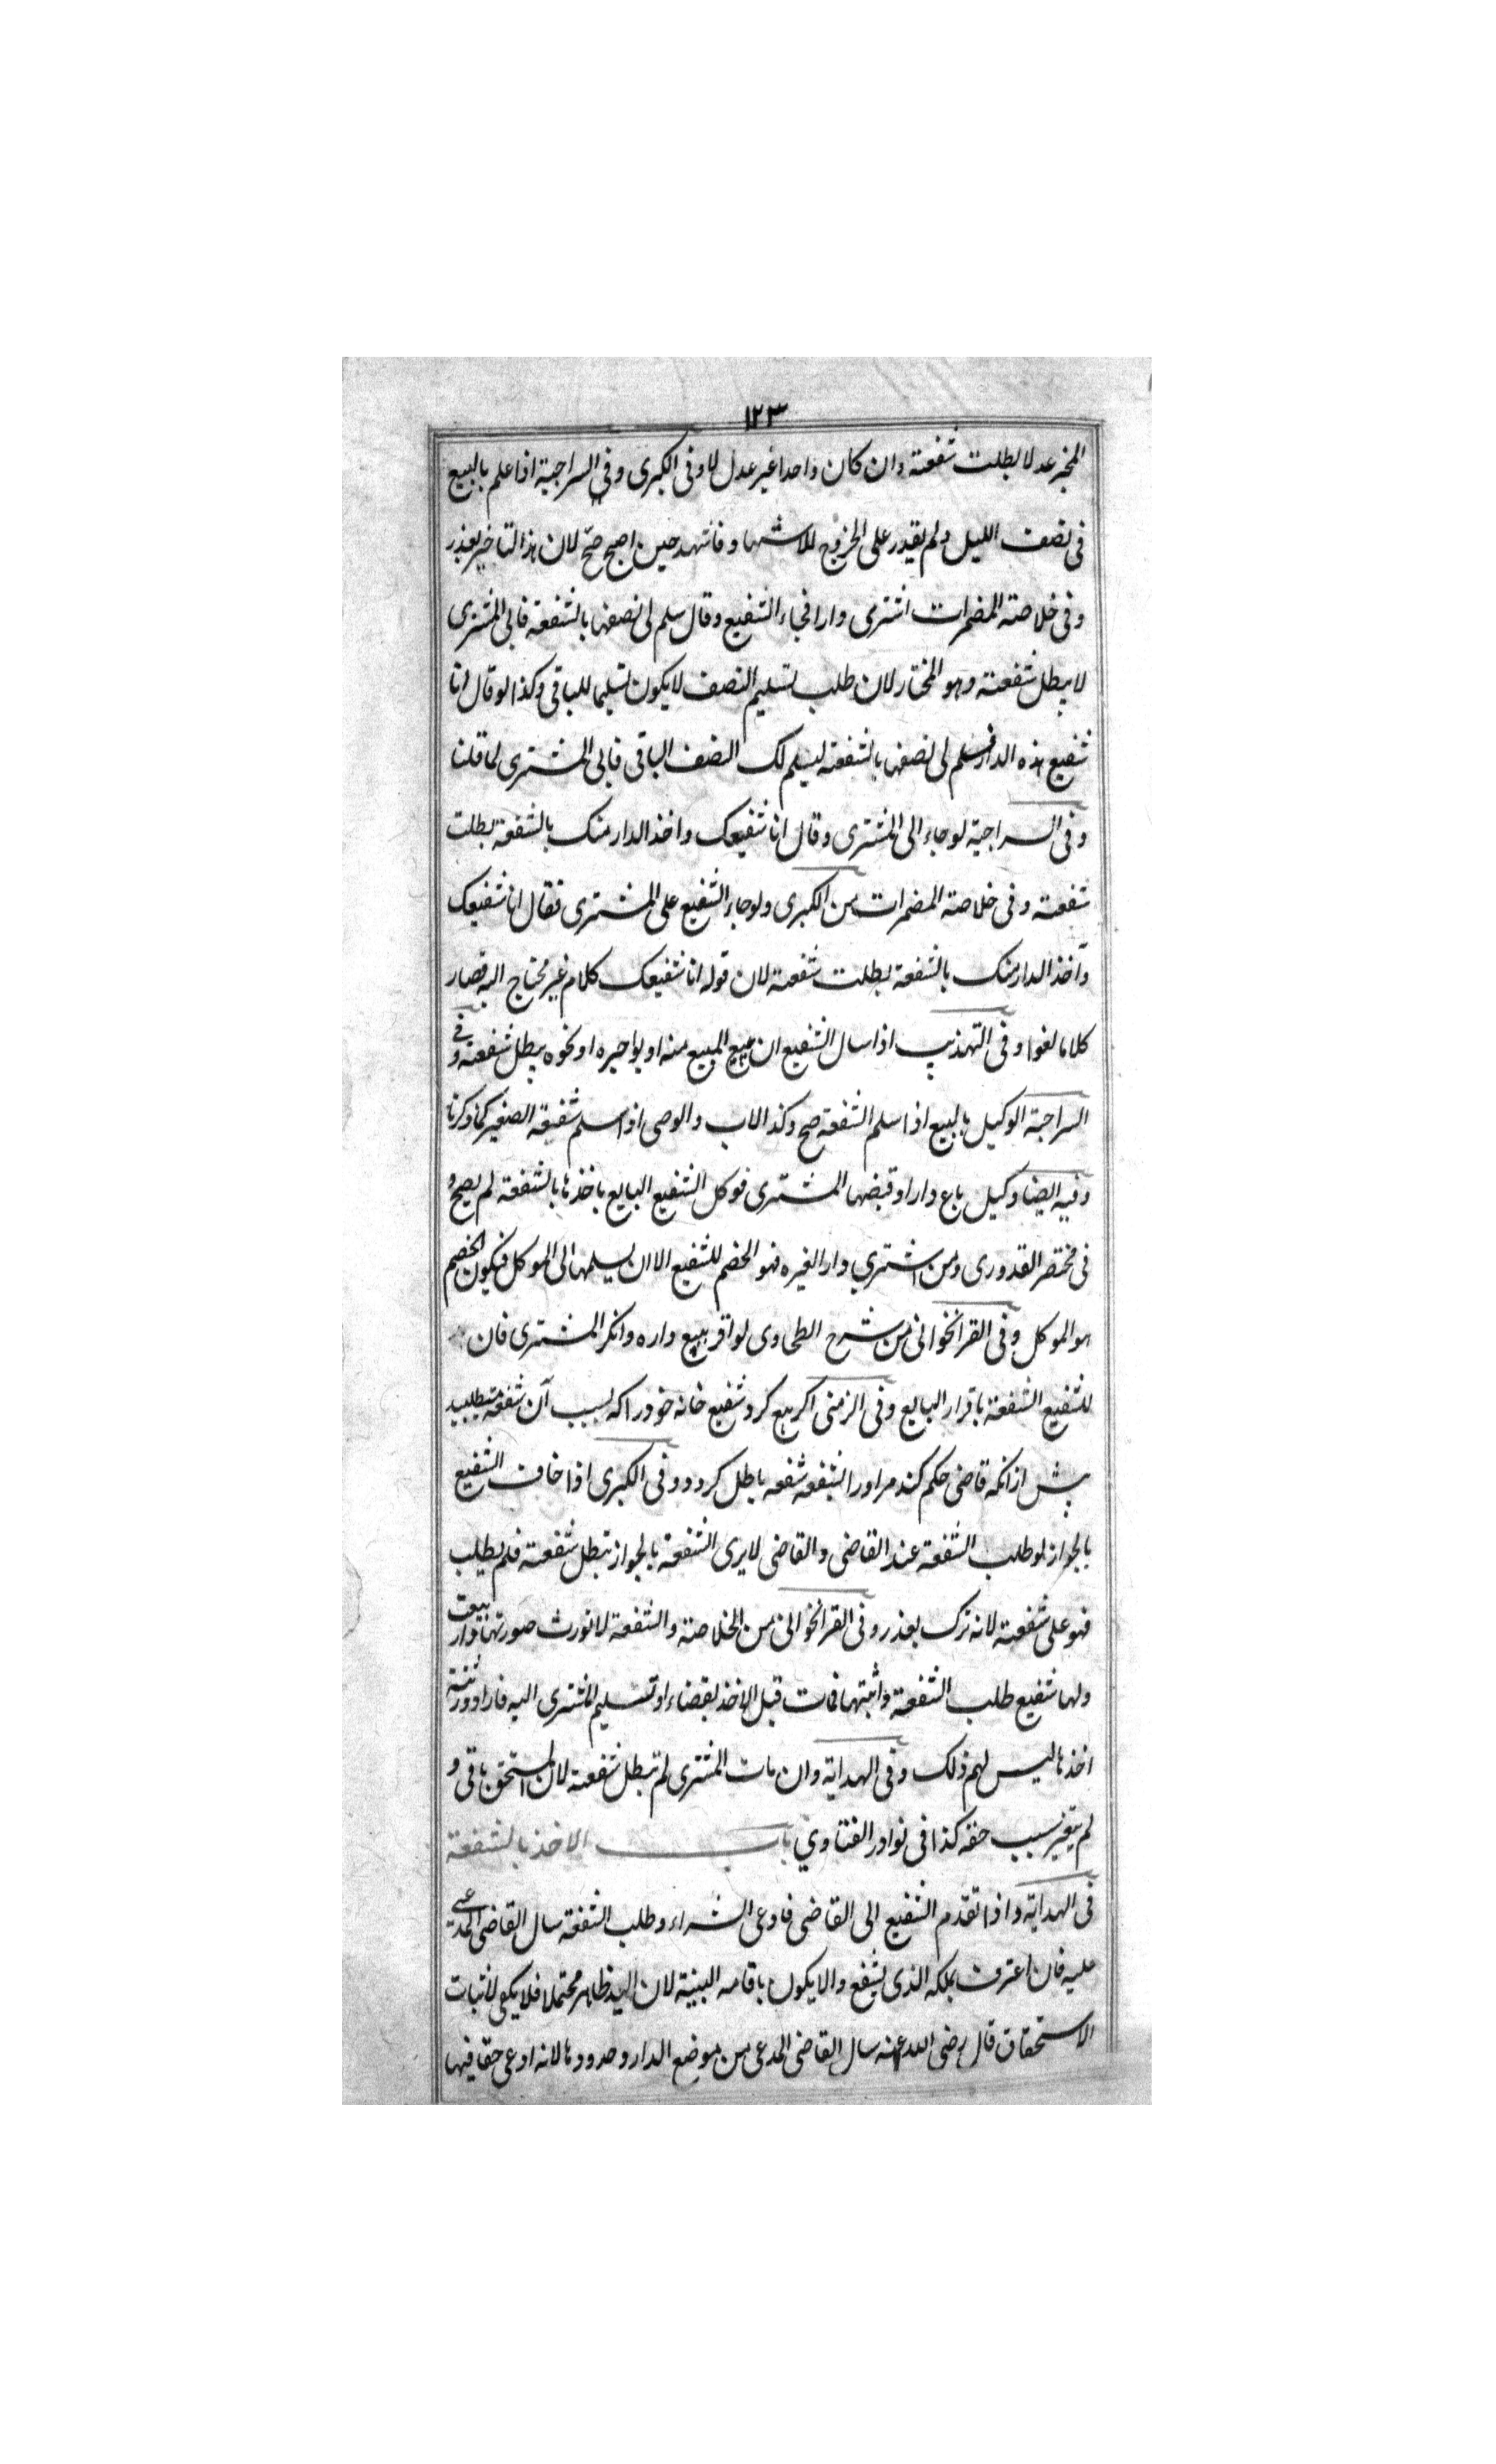 ١٢٣
المخبر عدلا بطلت شفعته وان كان واحدا غير عدل لا وفى الكبرى وفى السراجية اذا علم بالبيع
فى نصف الليل ولم يقدر على الخروج للاشهاد فاشهد حين اصبح صح لان هذا التاخير بعذر
وفى خلاصة المضمرات اشترى دارا فجاء الشفيع وقال سلم لى نصفها بالشفعة فابى المشترى
لا يبطل شفعته وهو المختار لان طلب تسليم النصف لا يكون تسليما للباقى وكذا لو قال انا
شفيع هذه الدار فسلم لى نصفها بالشفعة ليسلم لك النصف الباقى فابى المشترى لما قلنا
وفى السراجية لو جاء الى المشترى وقال انا شفيعك واخذ الدار منك بالشفعة بطلت
شفعته وفى خلاصة المضمرات من الكبرى ولو جاء الشفيع على المشترى فقال انا شفيعك
وآخذ الدار منك بالشفعة بطلت شفعته لان قوله انا شفيعك كلام غير محتاج اليه فصار
كلاما لغوا وفى التهذيب اذا سال الشفيع ان يبيع المبيع منه او يواجره او نحوه يبطل شفعته وفى
السراجية الوكيل بالبيع اذا سلم الشفعة صح وكذا الاب والوصى اذا سلم شفعة الصغير كما ذكرنا
وفيه ايضا وكيل باع دارا وقبضها المشترى فوكل الشفيع البايع باخذها بالشفعة لم يصح و
فى مختصر القدورى ومن اشترى دارا لغيره فهو الخصم للشفيع الا ان يسلمها الى الموكل فيكون الخصم
هو الموكل وفى القراخوانى من شرح الطحاوى لو اقر ببيع داره وانكر المشترى فان
للشفيع الشفعة باقرار البايع وفى الزمنى اكر بيع كرد شفيع خانه خود را كه بسبب آن شفعه ميطلبيد
پيش از انكه قاضى حكم كند مر او را بشفعه شفعه باطل كردد وفى الكبرى اذا خاف الشفيع
بالجوار لو طلب الشفعة عند القاضى والقاضى لا يرى الشفعة بالجوار تبطل شفعته فلم يطلب
فهو على شفعته لانه ترك بعذر وفى القراخوانى من الخلاصة والشفعة لا تورث صورتها دار بيعت
ولها شفيع طلب الشفعة واثبتها فمات قبل الاخذ بقضاء او تسليم المشترى اليه فاراد ورثته
اخذها ليس لهم ذلك وفى الهداية وان مات المشترى لم تبطل شفعته لان المستحق باقى و
لم يتغير سبب حقه كذا فى نوادر الفتاوي باب الاخذ بالشفعة
فى الهداية واذا تقدم الشفيع الى القاضى فادعى الشراء وطلب الشفعة سال القاضى المدعى
عليه فان اعترف بملكه الذى يشفع والا يكون باقامه البينة لان اليد ظاهر محتملا فلا يكفى لاثبات
الاستحقاق قال رضى الله عنه سال القاضى المدعى من موضع الدار وحدودها لانه ادعى حقا فيها